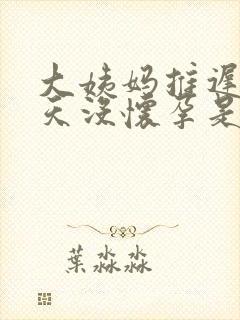 大姨妈推迟
天没怀孕是
葉淼淼